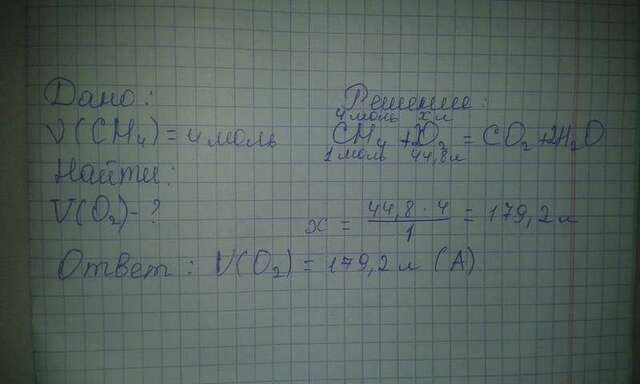 Дано:
ν(CH₄) = 4 моль
Найти:
V(O₂) - ?
Решение:
4 моль x л
CH₄ + 2O₂ = CO₂ + 2H₂O
1 моль 44,8 л
x = 44,8 · 4 / 1 = 179,2 л
Ответ: V(O₂) = 179,2 л (А)